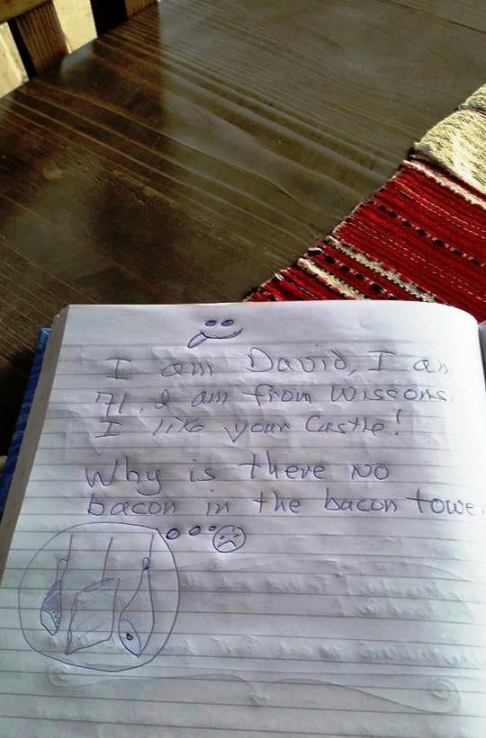 I am David, I am
71, I am from Wiscons
I like your Castle!
Why is there no
bacon in the bacon towe